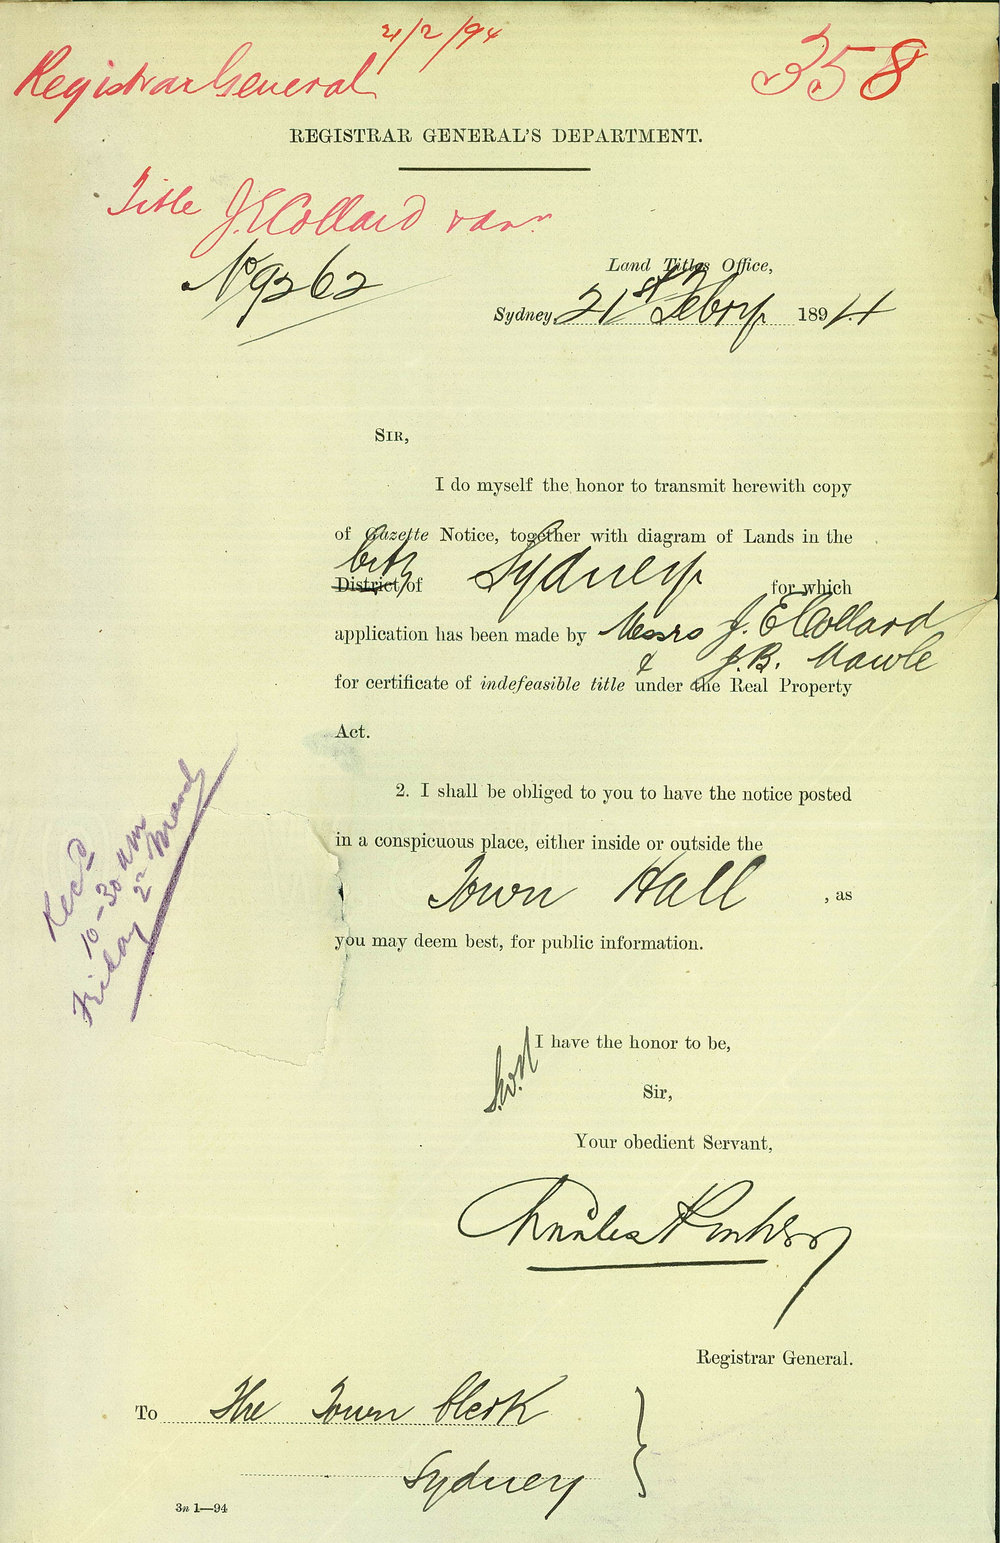 21/2/94
Registrar General
358
REGISTRAR GENERAL'S DEPARTMENT.
Title J. E Collard
No 9262
Land Titles Office,
Sydney, 21st Febry 1894
SIR,
I do myself the honor to transmit herewith copy
of Gazette Notice, together with diagram of Lands in the
City
District of Sydney for which
application has been made by Messrs J. E Collard
& J. B. Mawle
for certificate of indefeasible title under the Real Property
Act.
2. I shall be obliged to you to have the notice posted
in a conspicuous place, either inside or outside the
Town Hall , as
you may deem best, for public information.
Recd
10-30 am
Friday 2nd March
I have the honor to be,
Sir,
Your obedient Servant,
Charles
Registrar General.
To The Town Clerk
Sydney
3n 1—94